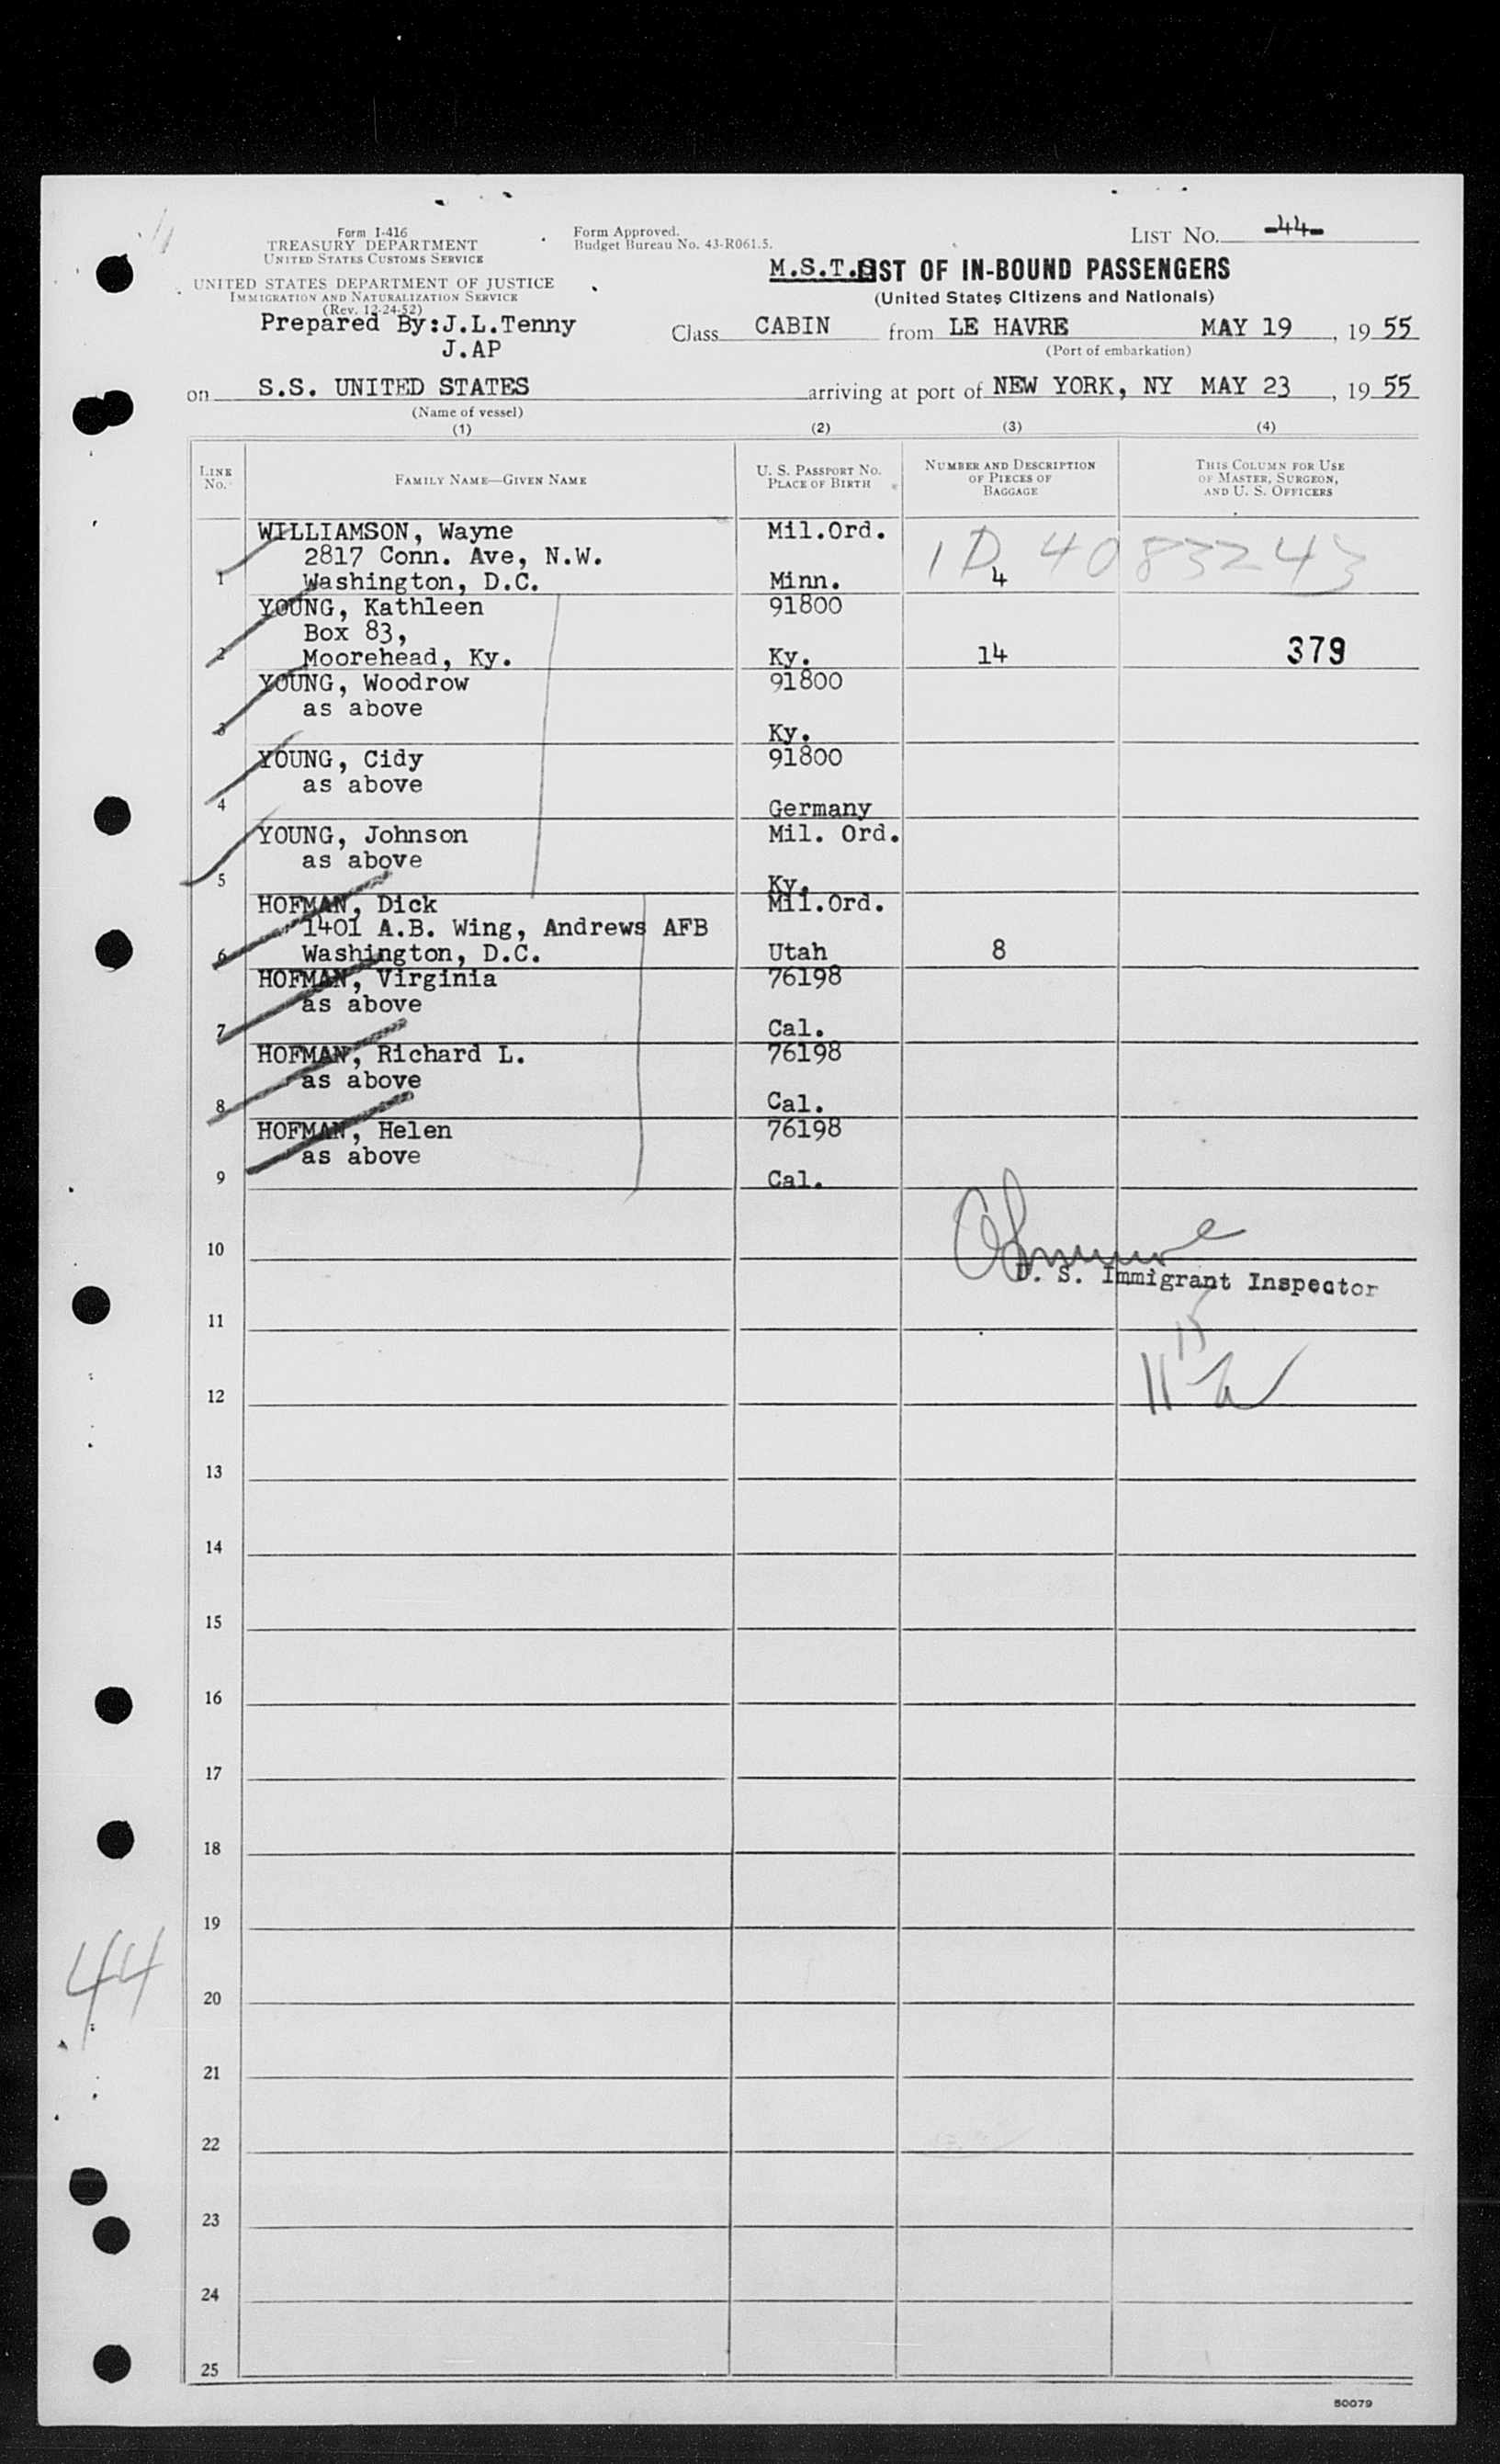 Form I-416
TREASURY DEPARTMENT
UNITED STATES CUSTOMS SERVICE
UNITED STATES DEPARTMENT OF JUSTICE
IMMIGRATION AND NATURALIZATION SERVICE
(Rev. 12-24-52)
Prepared By:J.L.Tenny
J.AP
Form Approved.
Budget Bureau No. 43-R061.5.
LIST NO. -44-
M.S.T.S
LIST OF IN-BOUND PASSENGERS
(United States Citizens and Nationals)
Class CABIN from LE HAVRE MAY 19, 19 55
(Port of embarkation)
on S.S. UNITED STATES arriving at port of NEW YORK, NY MAY 23, 19 55
(Name of vessel)
(1) (2) (3) (4)
LINE NO. FAMILY NAME—GIVEN NAME U. S. PASSPORT NO. PLACE OF BIRTH NUMBER AND DESCRIPTION OF PIECES OF BAGGAGE THIS COLUMN FOR USE OF MASTER, SURGEON, AND U. S. OFFICERS
WILLIAMSON, Wayne Mil.Ord. ID 4083243
2817 Conn. Ave, N.W.
1 Washington, D.C. Minn. 4
YOUNG, Kathleen 91800
Box 83,
2 Moorehead, Ky. Ky. 14 379
YOUNG, Woodrow 91800
as above
3 Ky.
YOUNG, Cidy 91800
as above
4 Germany
YOUNG, Johnson Mil. Ord.
as above
5 Ky.
HOFMAN, Dick Mil.Ord.
1401 A.B. Wing, Andrews AFB
6 Washington, D.C. Utah 8
HOFMAN, Virginia 76198
as above
7 Cal.
HOFMAN, Richard L. 76198
as above
8 Cal.
HOFMAN, Helen 76198
as above
9 Cal.
10
U. S. Immigrant Inspector
11
12
13
14
15
16
17
18
19
44
20
21
22
23
24
25
50079